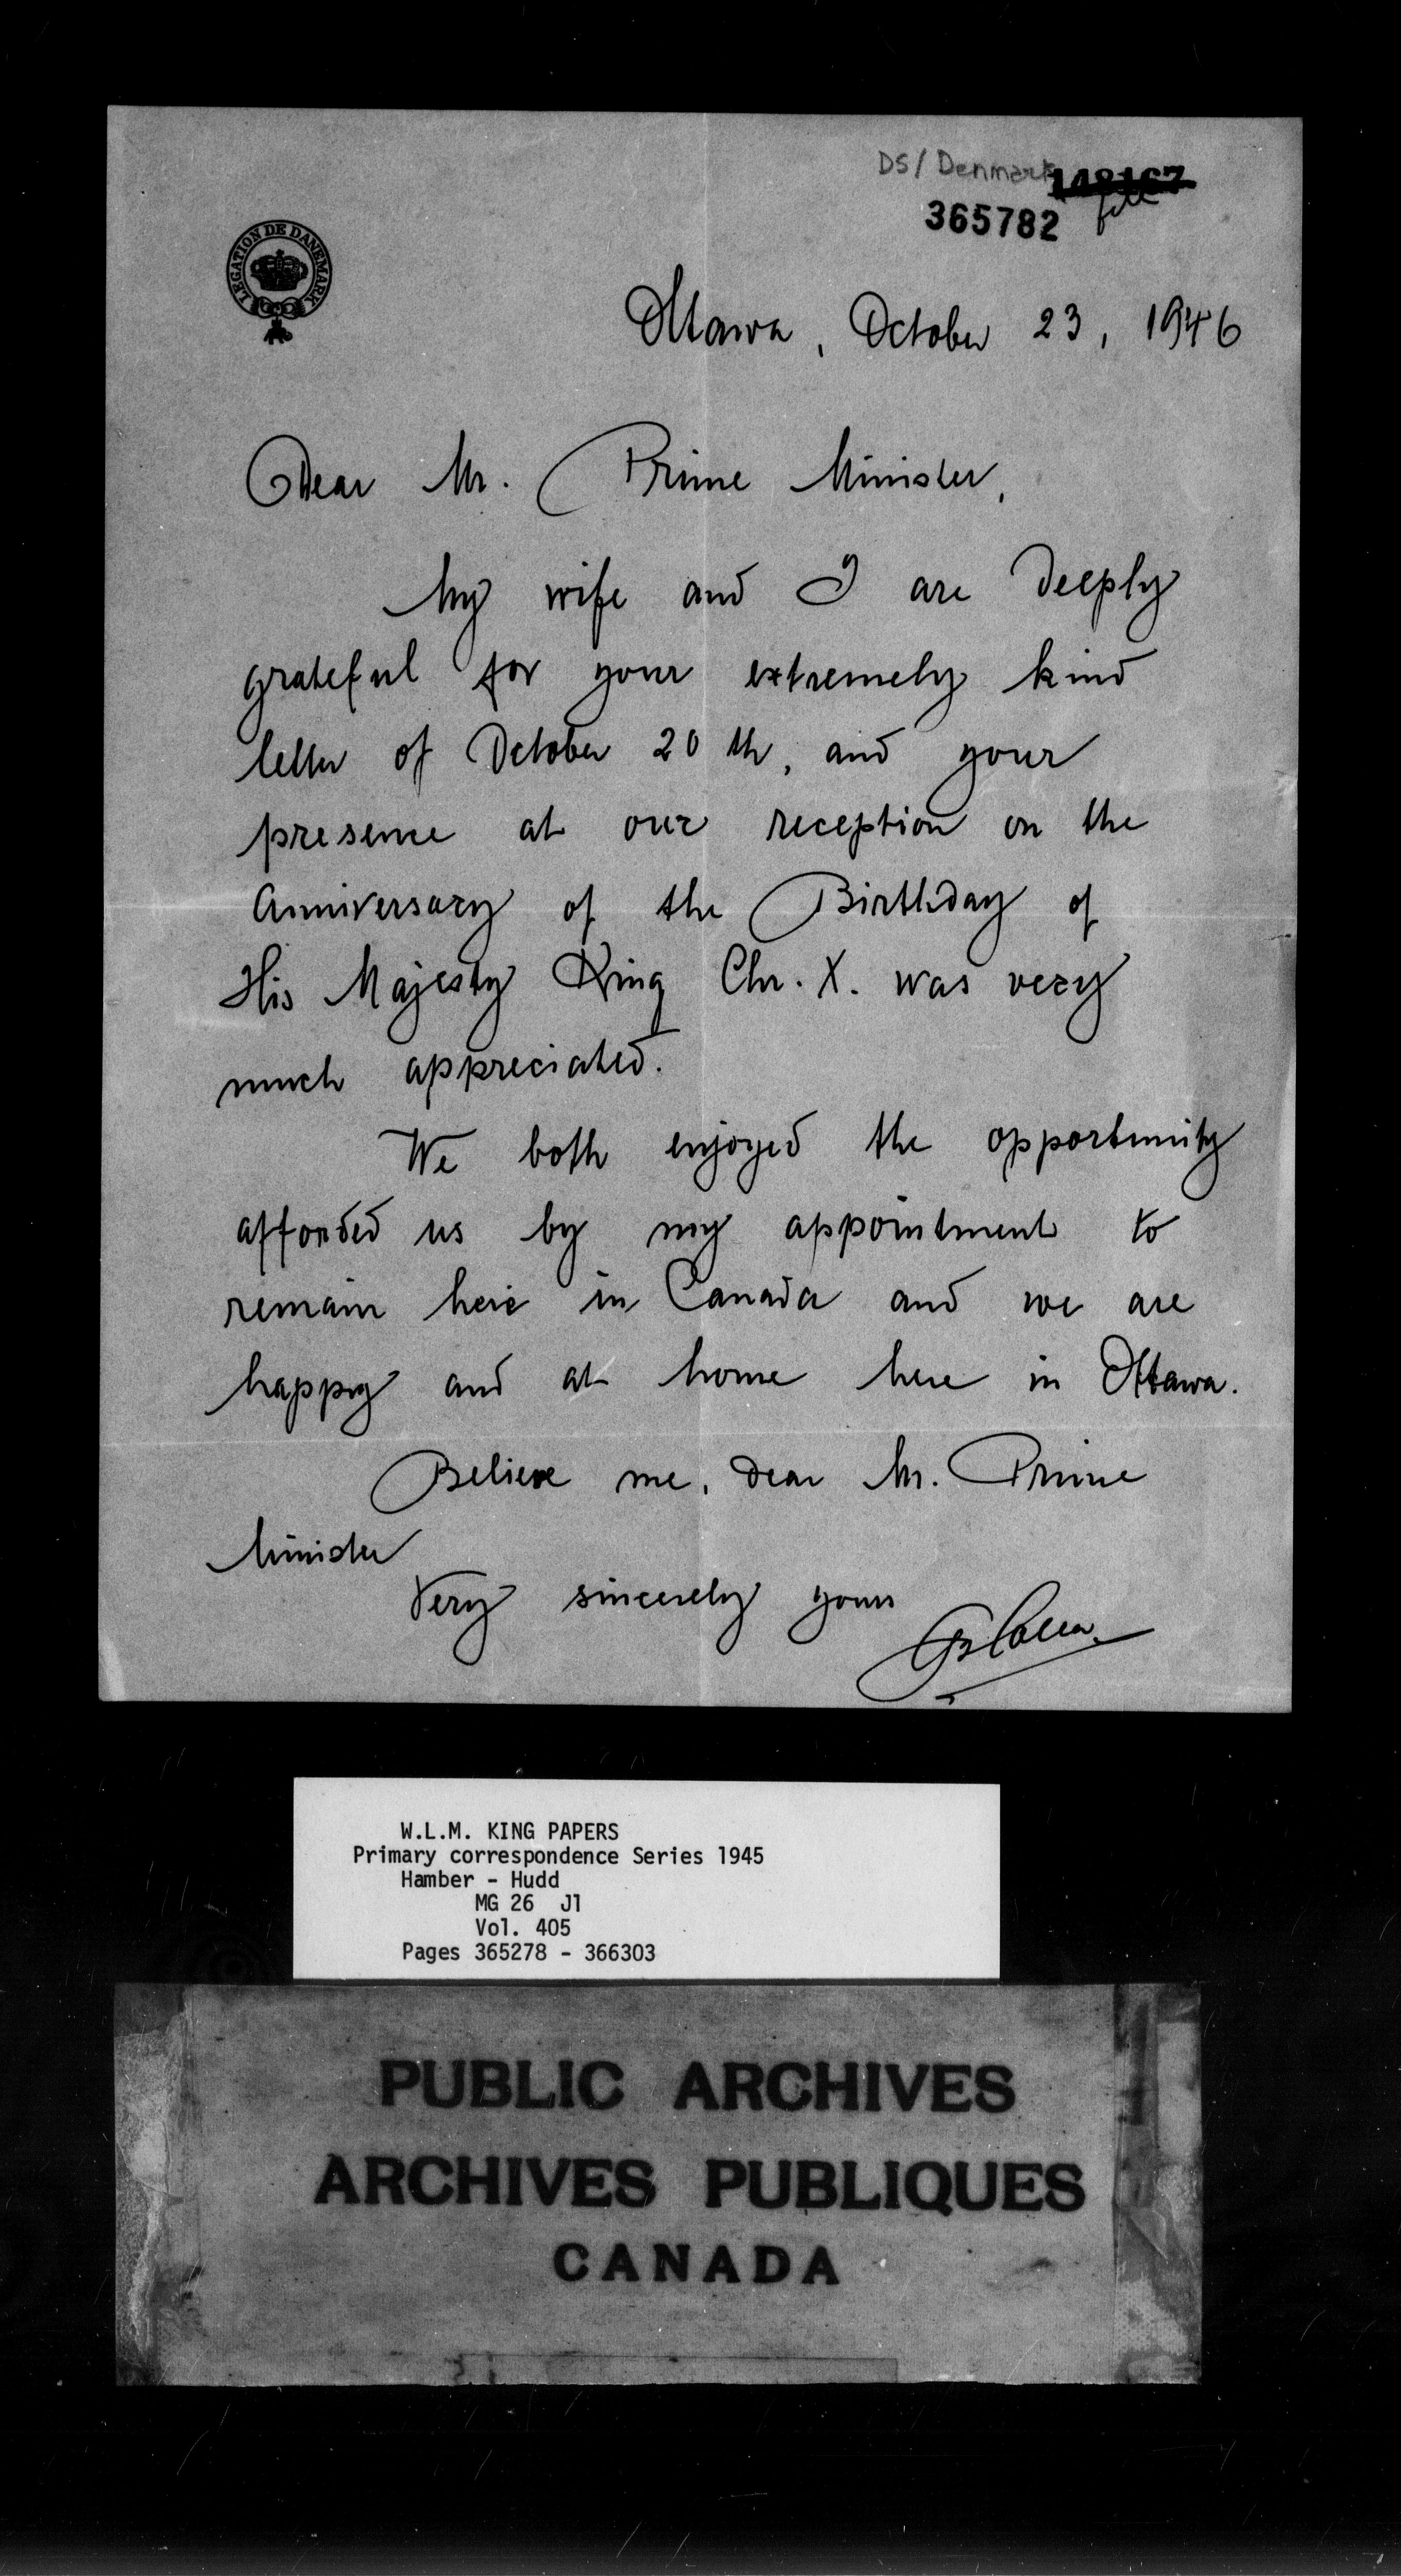 DS/Denmark
148167
file
365782
LEGATION DE DANEMARK
Ottawa, October 23, 1946
Dear Mr. Prime Minister,
My wife and I are deeply
grateful for your extremely kind
letter of October 20th, and your
presence at our reception on the
Anniversary of the Birthday of
His Majesty King Chr. X. was very
much appreciated.
We both enjoyed the opportunity
afforded us by my appointment to
remain here in Canada and we are
happy and at home here in Ottawa.
Believe me, dear Mr. Prime
Minister
Very sincerely yours
W.L.M. KING PAPERS
Primary correspondence Series 1945
Hamber - Hudd
MG 26 J1
Vol. 405
Pages 365278 - 366303
PUBLIC ARCHIVES
ARCHIVES PUBLIQUES
CANADA